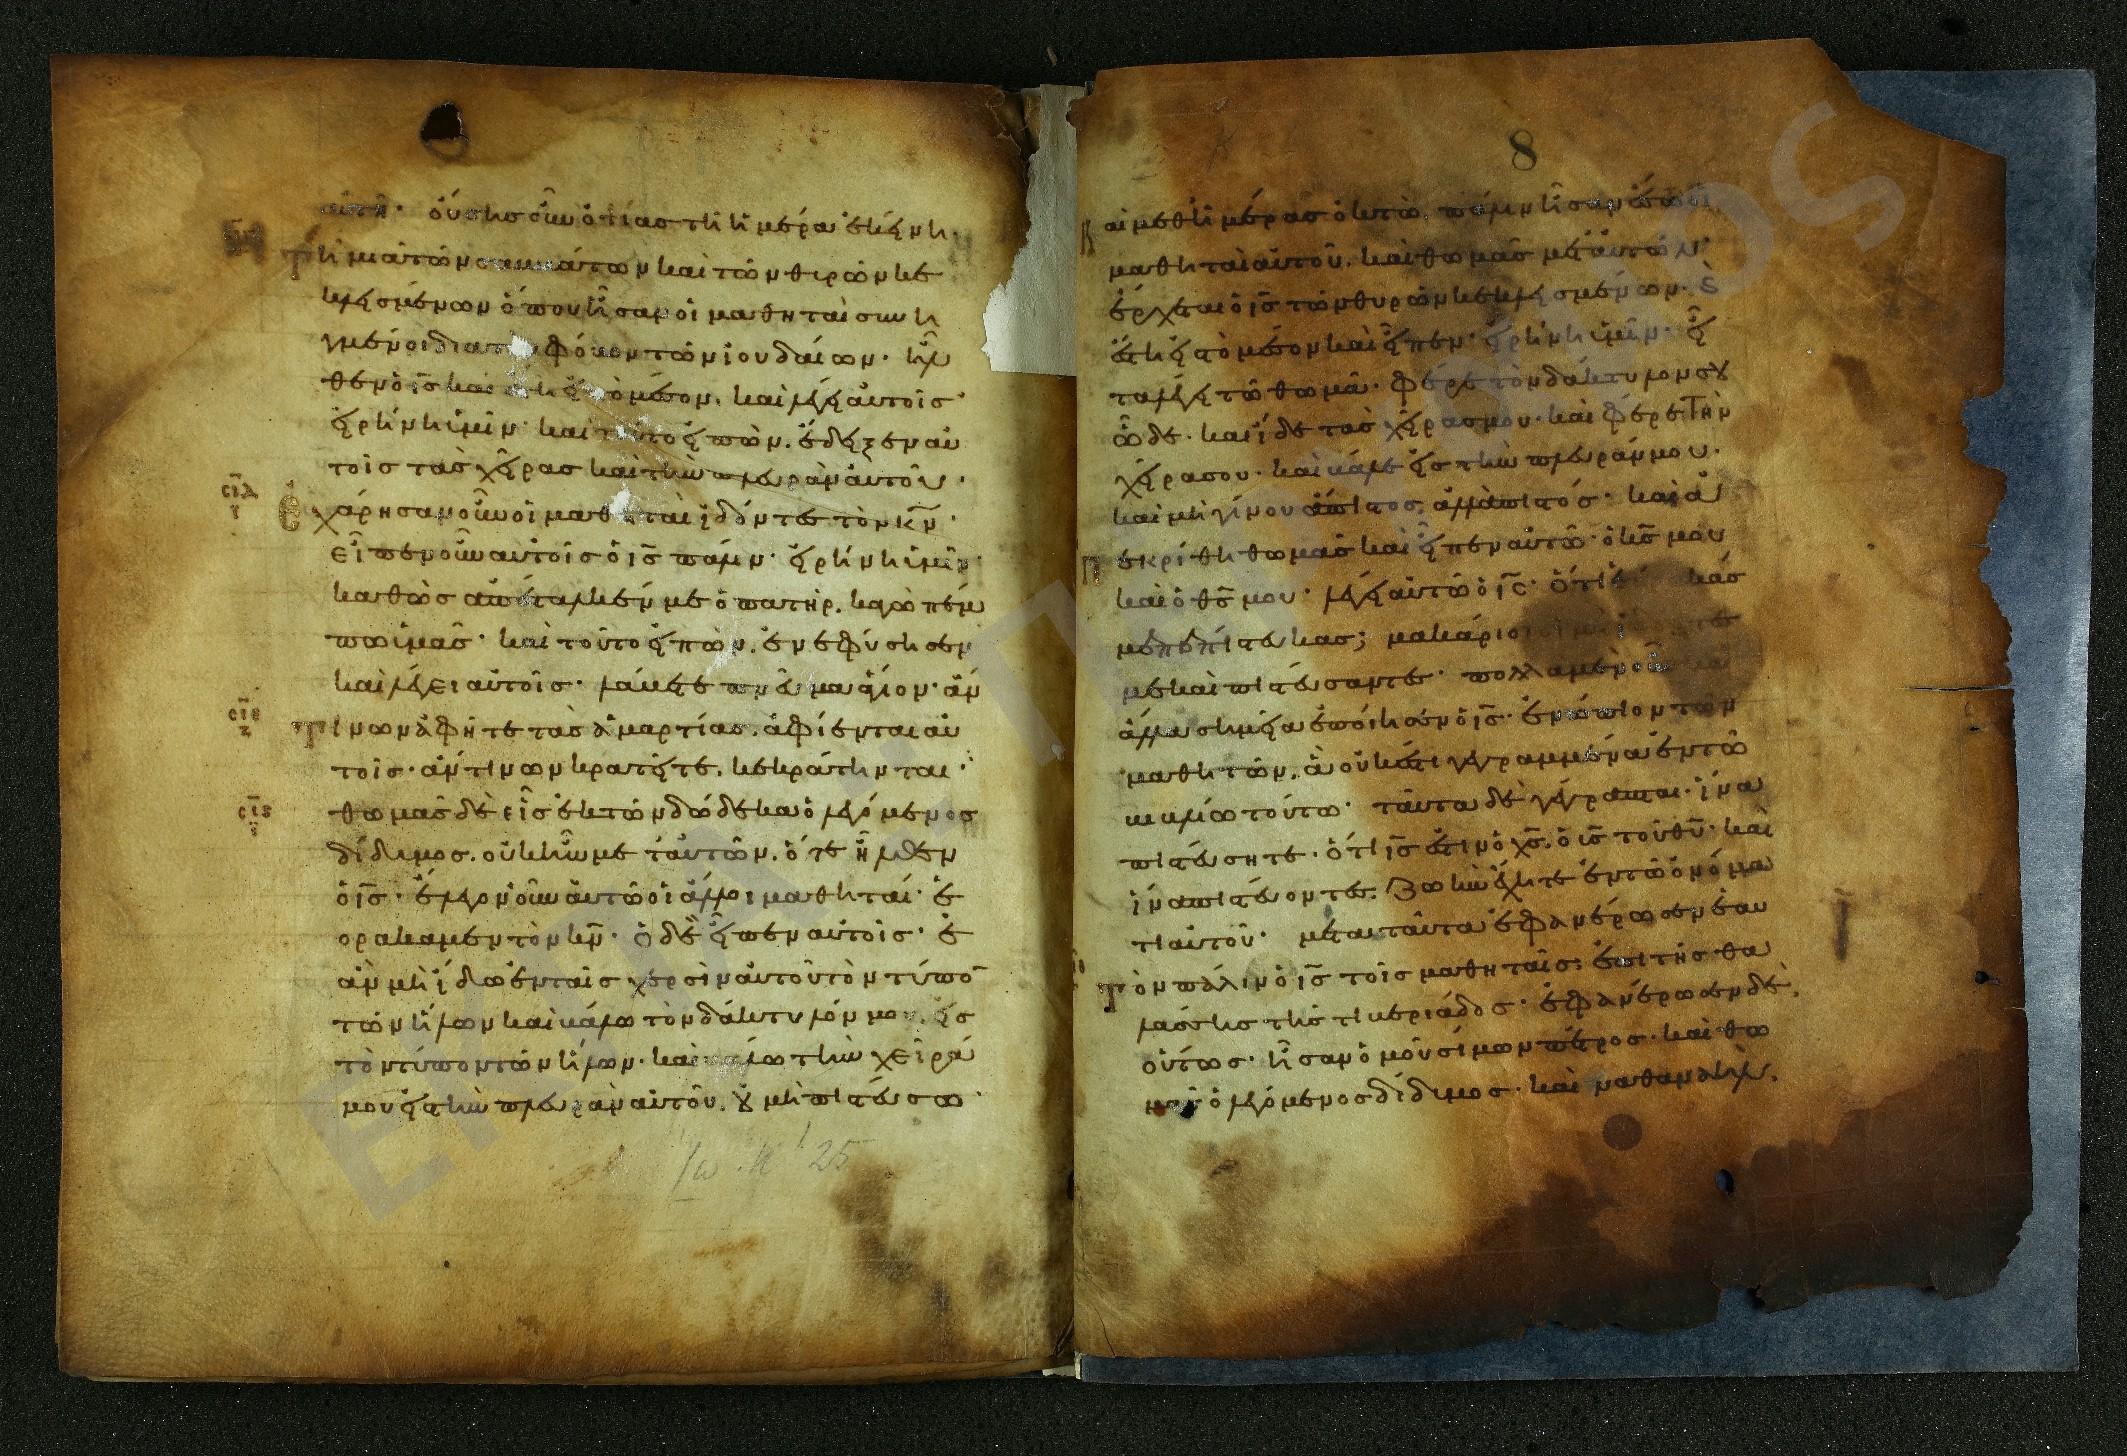 αυτη· ούσης οὖν ὀψίας τῆ ἡμέρα ἐκείνη
τῆ μιᾶ τῶν σαββάτων καὶ τῶν θυρῶν κε
κλεισμένων ὅπου ἦσαν οἱ μαθηταὶ συνη
γμένοι δια τὸν φόβον τῶν ἰουδαίων· ἦλ
θεν ὁ ις̅ καὶ ἔστη εἰς τὸ μέσον, καὶ λέγει αὐτοῖς·
εἰρήνη ὑμῖν· καὶ τοῦτο εἰπὼν, ἔδειξεν αὐ
τοῖς τὰς χεῖρας καὶ τὴν πλευρὰν αὐτοῦ·
σιδ
ἐχάρησαν οὖν οἱ μαθηταὶ ἰδόντες τὸν κν̅·
εἶπεν οὖν αὐτοῖς ὁ ις̅ πάλιν· εἰρήνη ὑμῖν·
καθὼς ἀπέσταλκέν με ὁ πατὴρ, καγὼ πέμ
πω ὑμᾶς· καὶ τοῦτο εἰπὼν, ἐνεφύσησεν
καὶ λέγει αὐτοῖς· λάβετε πν̅α ἅγιον· ἄν
σιε
τινων ἀφῆτε τὰς ἁμαρτίας, ἀφίενται αὐ
τοῖς· ἄν τινων κρατεῖτε, κεκράτηνται·
σις
θωμᾶς δὲ εἷς ἐκ τῶν δώδεκα ὁ λεγόμενος
δίδιμος, οὐκ ἦν μετ αὐτῶν, ὅτε ἦλθεν
ὁ ις̅· ἔλεγον οὖν αὐτῶ οἱ ἄλλοι μαθηταί· ἑ
οράκαμεν τὸν κν̅· ὁ δὲ εἶπεν αὐτοῖς· ἐ
ὰν μὴ ἴδω ἐν ταῖς χερσὶν αὐτοῦ τὸν τύπο̅
τῶν ἥλων καὶ βάλω τὸν δάκτυλόν μου εἰς
τὸν τύπον τῶν ἥλων· καὶ βάλω τὴν χεῖρά
μου εἰς τὴν πλευρὰν αὐτοῦ, οὐ μὴ πιστεύσω·
Ιω. κ' 25
8
Καὶ μεθ ἡμέρας ὀκτὼ, πάλιν ἦσαν ἔσω οἱ
μαθηταὶ αὐτοῦ, καὶ θωμᾶς μετ αὐτῶν·
ἔρχεται ὁ ις̅ τῶν θυρῶν κεκλεισμένων· καὶ
ἔστη εἰς τὸ μέσον καὶ εἶπεν· εἰρήνη ὑμῖν· εἶ
τα λέγει τῶ θωμᾶ· φέρε τὸν δάκτυλον σου
ὧδε· καὶ ἴδε τὰς χεῖρας μου· καὶ φέρε τὴν
χεῖρα σου· καὶ βάλε εἰς τὴν πλευράν μου·
καὶ μὴ γίνου ἄπιστος, ἀλλὰ πιστός· καὶ ἀ
πεκρίθη θωμᾶς καὶ εἶπεν αὐτῶ· ὁ κς̅ μου
καὶ ὁ θς̅ μου· λέγει αὐτῶ ὁ ις̅· ὅτι
με πεπίστευκας; μακάριοι οἱ μὴ
με καὶ πιστεύσαντες· πολλὰ μὲν οὖν καὶ
ἄλλα σημεῖα ἐποίησεν ὁ ις̅· ἐνώπιον τῶν
μαθητῶν, ἃ οὐκ ἔστι γεγραμμένα ἐν τῶ
βιβλίω τούτω· ταῦτα δὲ γέγραπται· ἵνα
πιστεύσητε· ὅτι ις̅ ἐστιν ὁ χς̅, ὁ υς̅ τοῦ θυ̅· καὶ
ἵνα πιστεύοντες, ζωὴν ἔχητε ἐν τῶ ὀνόμα
τι αὐτοῦ· μετα ταῦτα ἐφανέρωσεν ἑαυ
τὸν πάλιν ὁ ις̅ τοῖς μαθηταῖς· ἐπι τῆς θα
λάσσης τῆς τιβεριάδος· ἐφανέρωσεν δὲ,
οὕτως· ἦσαν ὁμοῦ σίμων πέτρος· καὶ θω
μᾶς ὁ λεγόμενος δίδιμος· καὶ ναθαναὴλ,